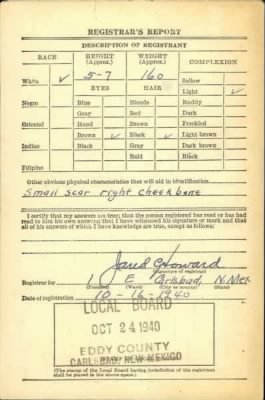 REGISTRAR'S REPORT
DESCRIPTION OF REGISTRANT
RACE HEIGHT (Approx.) WEIGHT (Approx.) COMPLEXION
White ✓ 5-7 160 Sallow
EYES HAIR Light ✓
Negro Blue Blonde Ruddy
Gray Red Dark
Oriental Hazel Brown Freckled
Brown ✓ Black ✓ Light brown
Indian Black Gray Dark brown
Bald Black
Filipino
Other obvious physical characteristics that will aid in identification
Small scar right cheek bone
I certify that my answers are true; that the person registered has read or has had
read to him his own answers; that I have witnessed his signature or mark and that
all of his answers of which I have knowledge are true, except as follows:
Jared Howard
(Signature of registrar)
Registrar for 1 E Carlsbad, N.Mex
(Precinct) (Ward) (City or county) (State)
Date of registration 10-16-1940
LOCAL BOARD
OCT 24 1940
EDDY COUNTY
CARLSBAD, NEW MEXICO
(The stamp of the Local Board having jurisdiction of the registrant
shall be placed in the above space.)